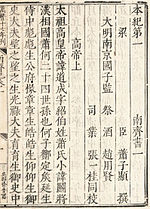 本紀第一　南齊書一
梁　蕭子顯　撰
大明南京國子監　祭酒趙用賢
司業張一桂同校
高帝上
太祖高皇帝諱道成字紹伯姓蕭氏小諱鬭將
漢相國蕭何二十四世孫也何子酇定侯延生
侍中彪彪生公府掾章章生皓皓生仰仰生御
史大夫望之望之生光祿大夫育育生御史中